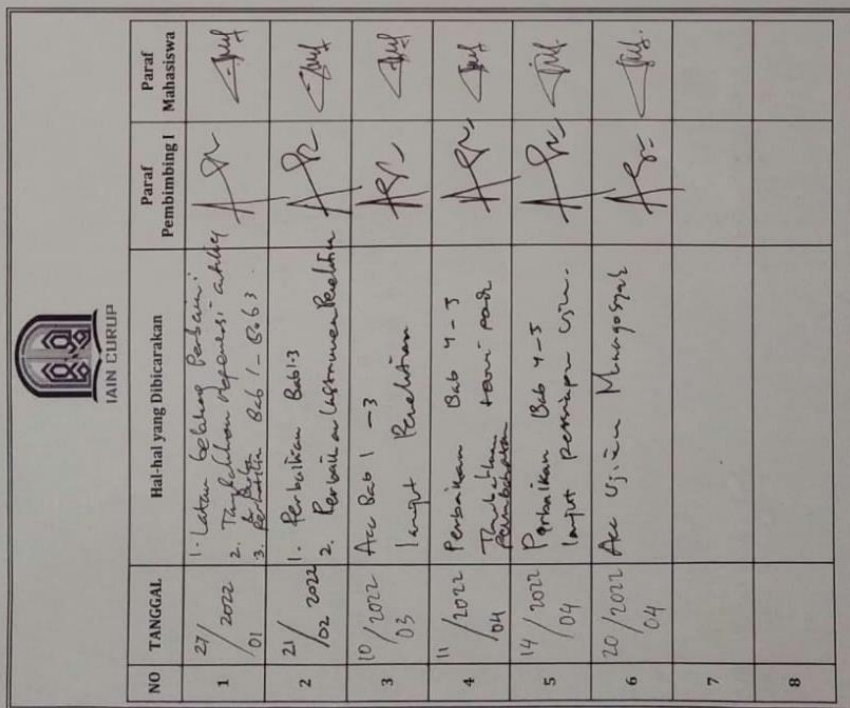 IAIN CURUP
NO TANGGAL Hal-hal yang Dibicarakan Paraf Pembimbing I Paraf Mahasiswa
1 27/01 2022
1. Latar belakang Perbaiki
2. Tambahkan referensi
3. Perbaiki Bab 1 - Bab 3
2 21/02 2022
1. Perbaikan Bab 1-3
2. Perbaikan Instrumen Penelitian
3 10/03 2022
Acc Bab 1 - 3
lanjut Penelitian
4 11/04 2022
Perbaikan Bab 4 - 5
Tambahkan teori pada
Pembahasan
5 14/04 2022
Perbaikan Bab 4-5
lanjut persiapan ujian.
6 20/04 2022
Acc Ujian Munaqosyah
7
8